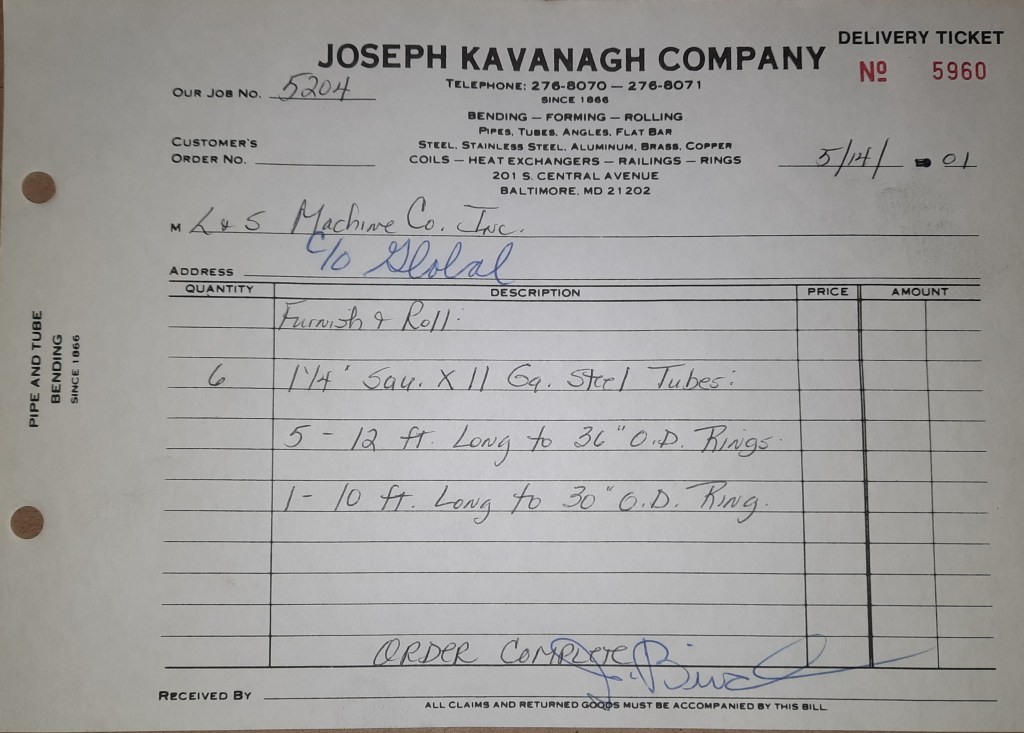 DELIVERY TICKET
JOSEPH KAVANAGH COMPANY
Nº 5960
OUR JOB NO. 5204
TELEPHONE: 276-8070 — 276-8071
SINCE 1866
BENDING — FORMING — ROLLING
PIPES, TUBES, ANGLES, FLAT BAR
CUSTOMER'S
ORDER NO.
STEEL, STAINLESS STEEL, ALUMINUM, BRASS, COPPER
COILS — HEAT EXCHANGERS — RAILINGS — RINGS
5/14/ 01
201 S. CENTRAL AVENUE
BALTIMORE, MD 21202
M L & S Machine Co. Inc.
c/o Global
ADDRESS
QUANTITY DESCRIPTION PRICE AMOUNT
Furnish & Roll:
6 1 1/4" Squ. X 11 Ga. Steel Tubes:
5 - 12 ft. Long to 36" O.D. Rings.
1 - 10 ft. Long to 30" O.D. Ring.
ORDER COMPLETE
RECEIVED BY
ALL CLAIMS AND RETURNED GOODS MUST BE ACCOMPANIED BY THIS BILL
PIPE AND TUBE
BENDING
SINCE 1866